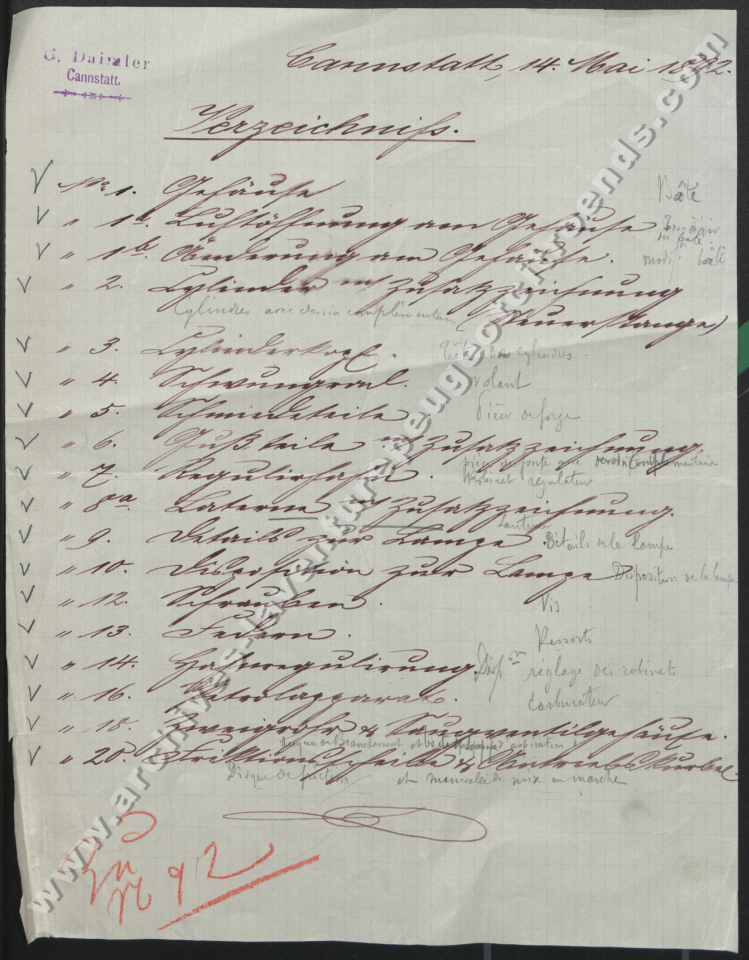 G. Daimler
Cannstatt
Cannstatt, 14. Mai 1892.
Verzeichniß.
No 1. Gehäuse Bâti
" 1a. Luftöffnung am Gehäuse
" 1b. Änderung am Gehäuse. modif. bâti
" 2. Cylinder mit Zusatzzeichnung
Cylindres avec dessin complémentaire (Steuerstange)
" 3. Cylinderkopf. Tête des cylindres.
" 4. Schwungrad. Volant
" 5. Schmiedeteile. Pièces de forge
" 6. Gußteile mit Zusatzzeichnung
" 7. Regulirhahn. Robinet régulateur
" 8a. Laterne mit Zusatzzeichnung.
Lanterne
" 9. Details zur Lampe. Détails de la lampe
" 10. Disposition zur Lampe Disposition de la lampe
" 12. Schrauben. Vis
" 13. Federn. Ressorts
" 14. Hahnregulirung. Dispon réglage des robinets
" 16. Petrolapparat. Carburateur
" 18. Zweigrohr & Saugventilgehäuse.
Tuyau de Branchement et aspiration
" 20. Friktionsscheibe & Antriebskurbel.
Disque de friction et manivelle de mise en marche
92
www.archives-laventurepeugeotcitroends.com